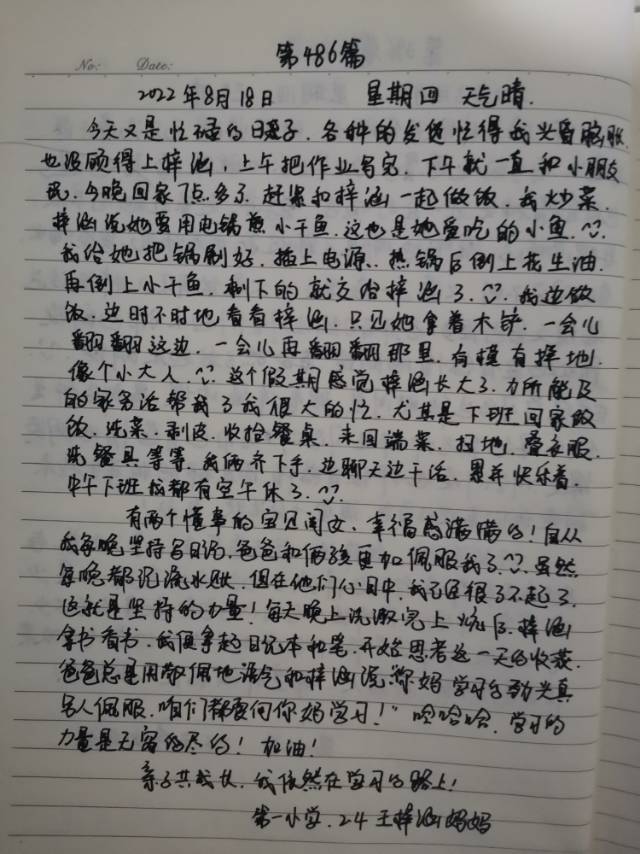 第486篇
No: Date:
2022年8月18日 星期四 天气晴.
今天又是忙碌的日子,各种的发货忙得我头昏脑胀
也没顾得上梓涵,上午把作业写完,下午就一直和小朋友
玩,今晚回家7点多了,赶紧和梓涵一起做饭,我炒菜,
梓涵说她要用电锅煎小干鱼,这也是她爱吃的小鱼,
我给她把锅刷好,插上电源、热锅后倒上花生油,
再倒上小干鱼,剩下的就交给梓涵了,我边做
饭,边时不时地看看梓涵,只见她拿着木铲,一会儿
翻翻这边,一会儿再翻翻那里,有模有样地,
像个小大人,这个假期感觉梓涵长大了,力所能及
的家务活帮我了我很大的忙,尤其是下班回家做
饭,洗菜,剥皮,收拾餐桌,来回端菜,扫地,叠衣服,
洗餐具等等,我俩齐下手,边聊天边干活,累并快乐着,
中午下班我都有空午休了,
有两个懂事的宝贝闺女,幸福感满满的!自从
我每晚坚持写日记,爸爸和俩孩更加佩服我了,虽然
每晚都记流水账,但在他们心目中,我已经很了不起了,
这就是坚持的力量!每天晚上洗漱完上炕后,梓涵
拿书看书,我便拿起日记本和笔,开始思考这一天的收获,
爸爸总是用都佩地语气和梓涵说"你妈学习的劲头真
另人佩服,咱们都要向你妈学习!"哈哈哈,学习的
力量是无穷的尽的!加油!
亲子共成长,我依然在学习的路上!
第一小学,2.4 王梓涵妈妈